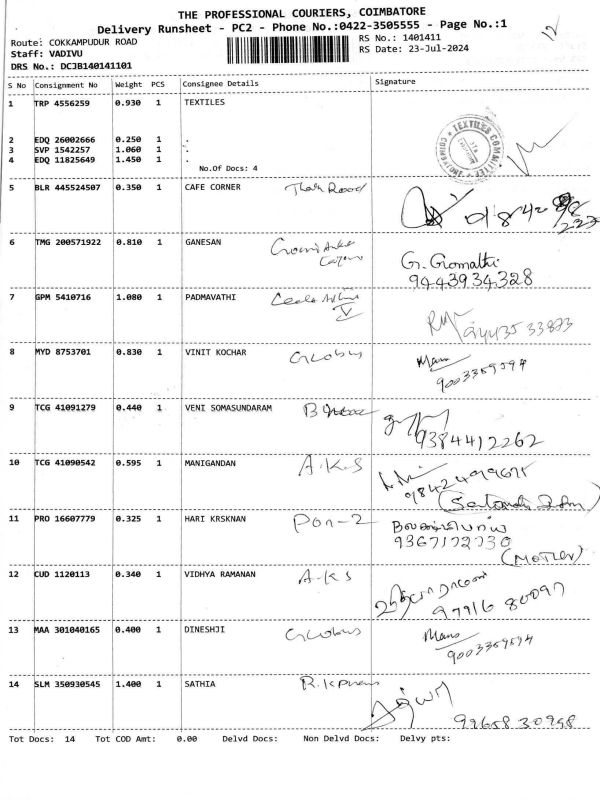 THE PROFESSIONAL COURIERS, COIMBATORE
Delivery Runsheet - PC2 - Phone No.:0422-3505555 - Page No.:1
Route: COKKAMPUDUR ROAD RS No.: 1401411
Staff: VADIVU RS Date: 23-Jul-2024
DRS No.: DCJB140141101
S No Consignment No Weight PCS Consignee Details Signature
1 TRP 4556259 0.930 1 TEXTILES
TEXTILES COMMITTEE
COIMBATORE
2 EDQ 26002666 0.250 1 .
3 SVP 1542257 1.060 1 .
4 EDQ 11825649 1.450 1 .
No.Of Docs: 4
5 BLR 445524507 0.350 1 CAFE CORNER
6 TMG 200571922 0.810 1 GANESAN G. Gomathi
9443934328
7 GPM 5410716 1.080 1 PADMAVATHI
8 MYD 8753701 0.830 1 VINIT KOCHAR Globus Mano
9003359594
9 TCG 41091279 0.440 1 VENI SOMASUNDARAM
9384412262
10 TCG 41090542 0.595 1 MANIGANDAN A.K.S
11 PRO 16607779 0.325 1 HARI KRSKNAN Pon-2
(MOTHER)
12 CUD 1120113 0.340 1 VIDHYA RAMANAN A-KS
97916 80097
13 MAA 301040165 0.400 1 DINESHJI Globus Mano
9003359594
14 SLM 350930545 1.400 1 SATHIA
Tot Docs: 14 Tot COD Amt: 0.00 Delvd Docs: Non Delvd Docs: Delvy pts: